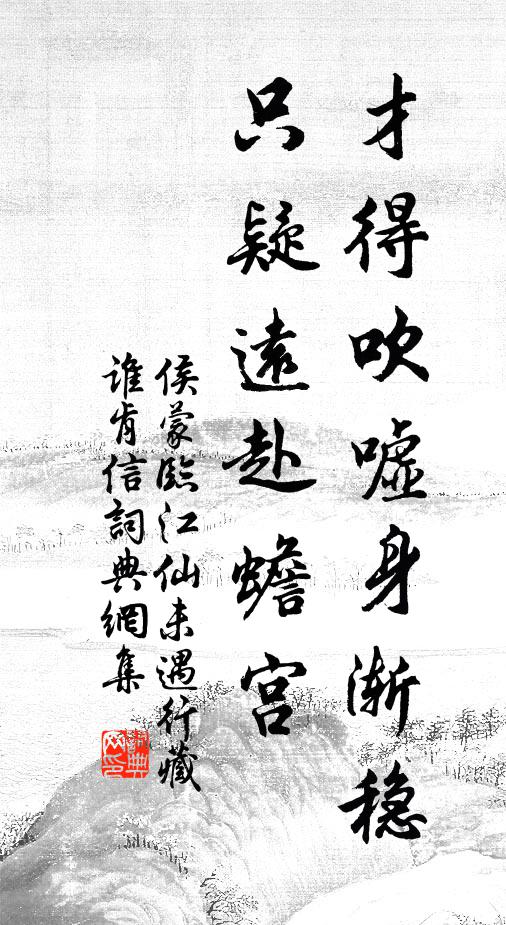 才得吹嘘身渐稳
只疑遠赴蟾宫
侯蒙臨江仙未遇行藏
誰肯信詞典網集